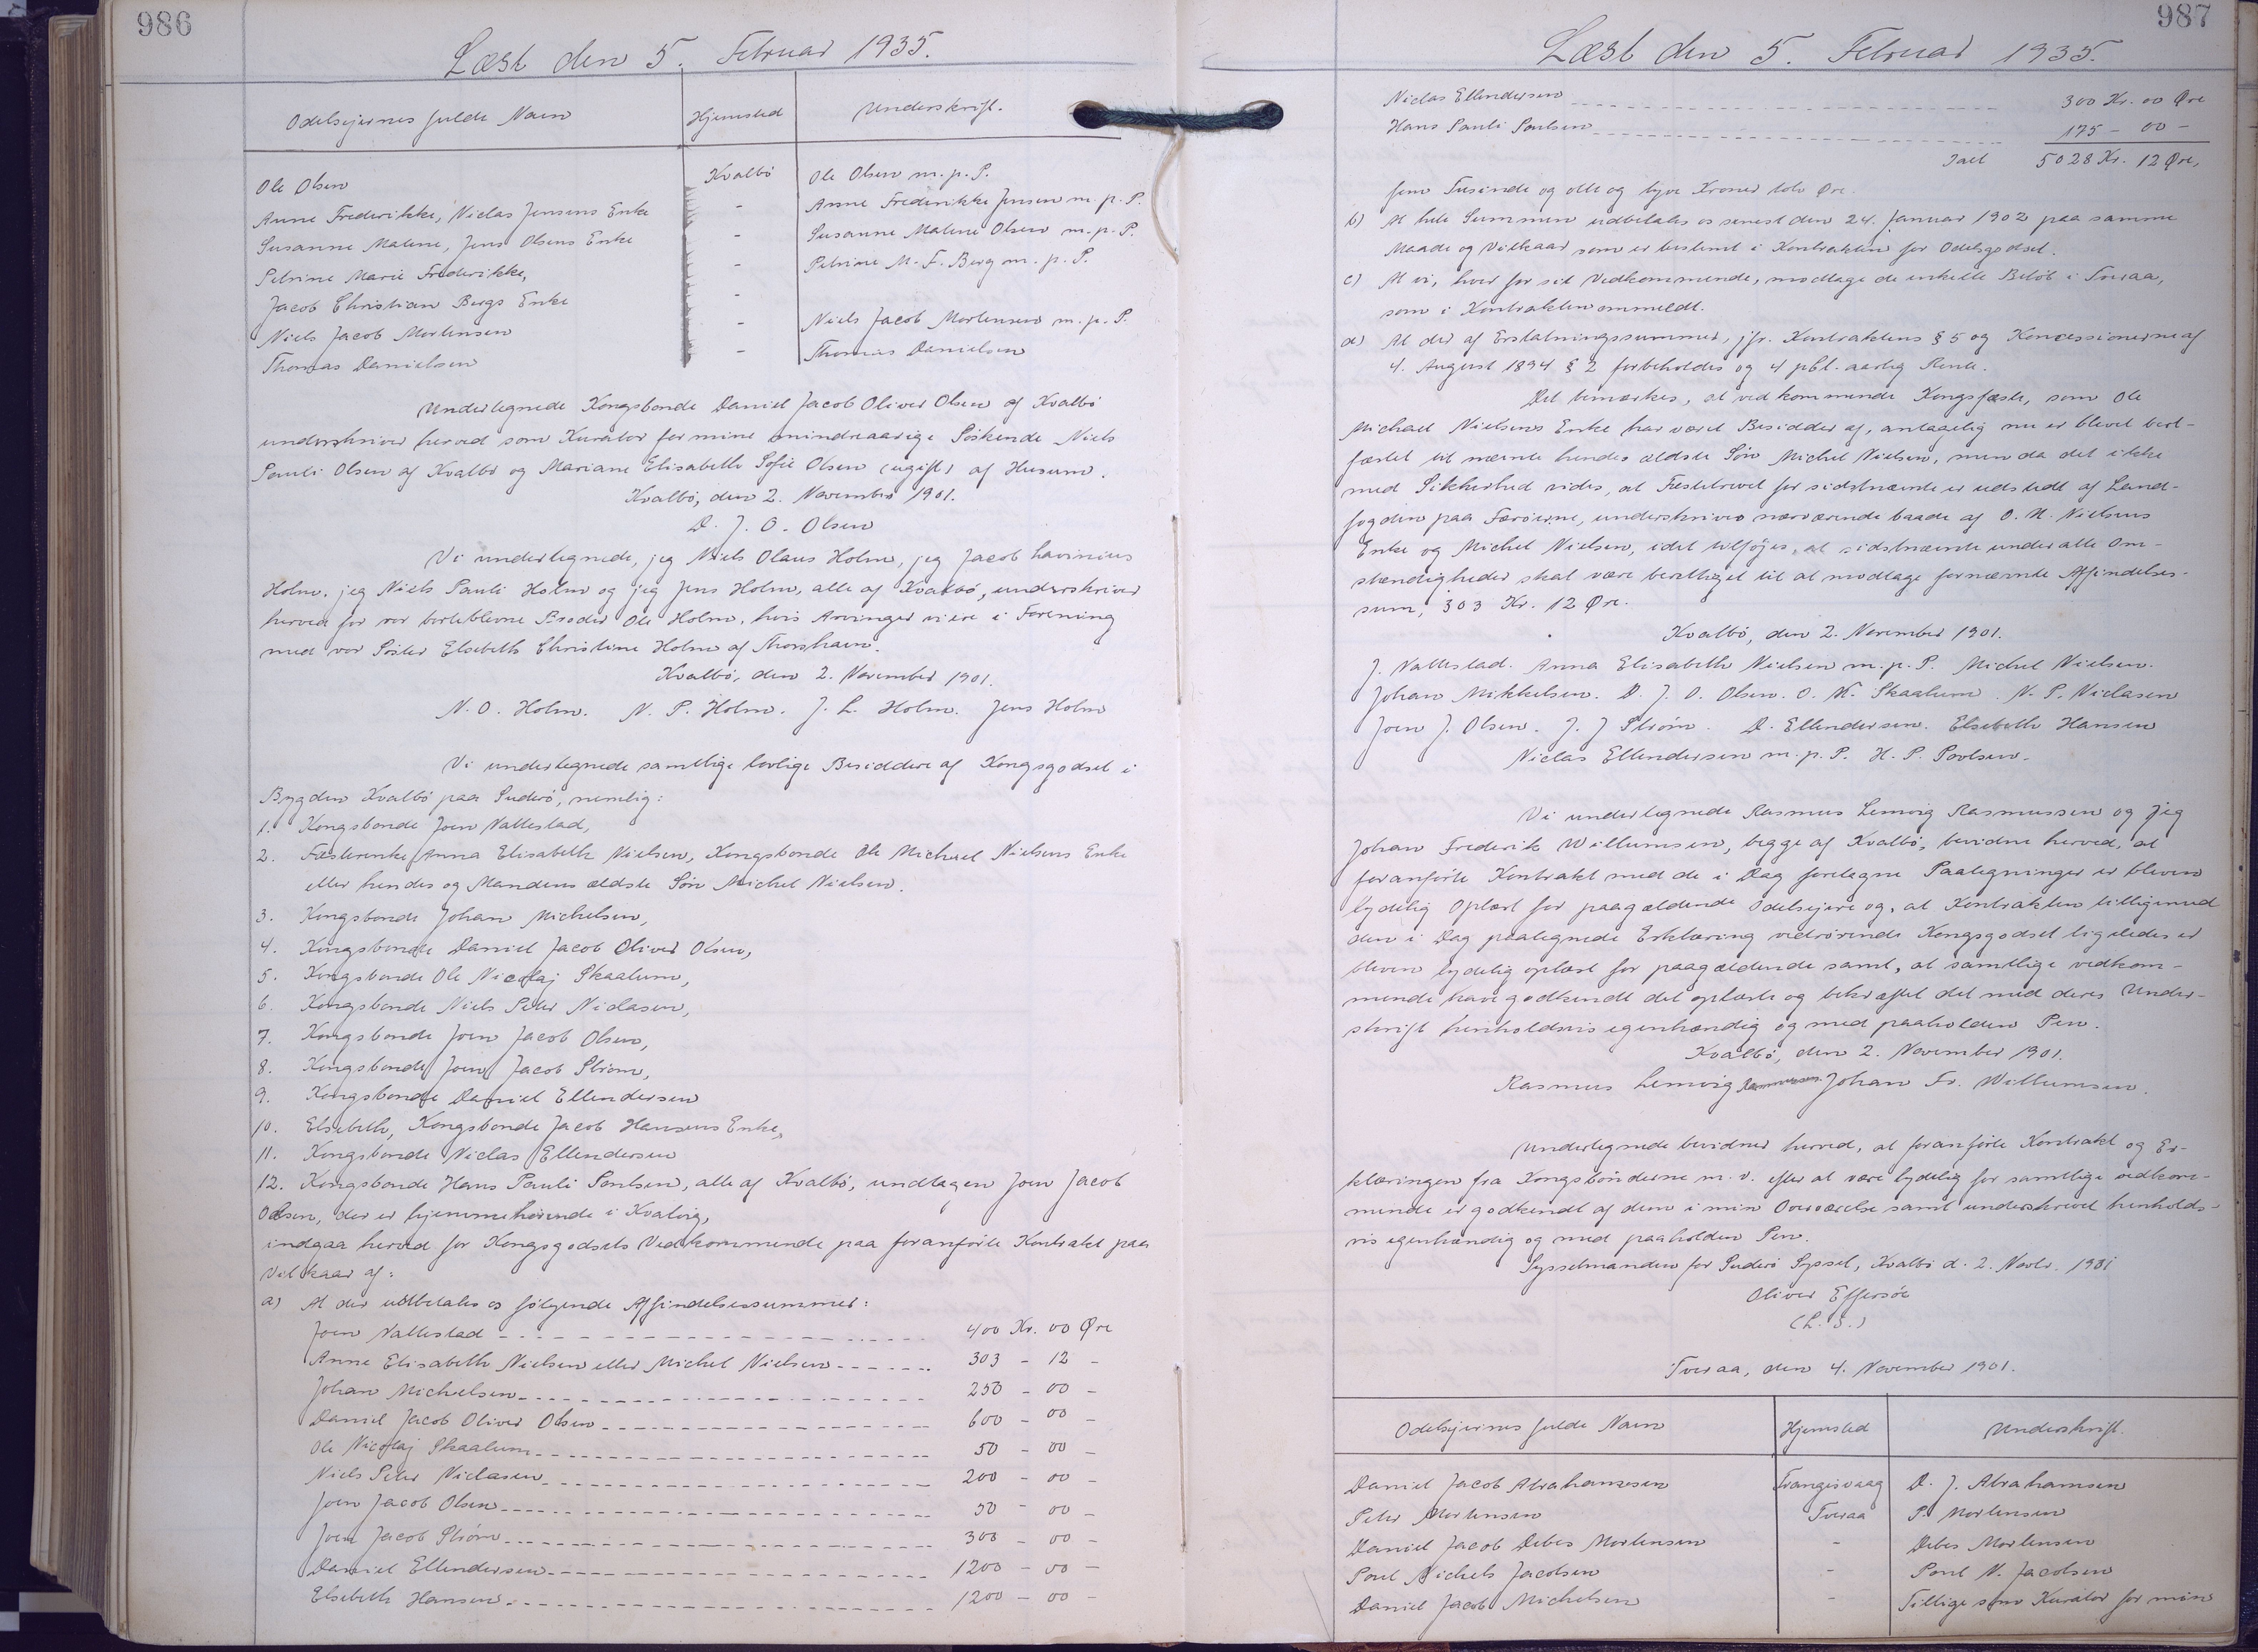 986
Læst den 5. Februar 1935.
Odelsejernes fulde Navn Hjemsted Underskrift.
Ole Olsen Kvalbö Ole Olsen m. p. P.
Anne Frederikke, Niclas Jensens Enke - Anne Frederikke Jensen m. p. P.
Susanne Malene, Jens Olsens Enke - Susanne Malene Olsen m. p. P.
Petrine Marie Frederikke, - Petrine M. F. Berg m. p. P.
Jacob Christian Bergs Enke -
Niels Jacob Mortensen - Niels Jacob Mortensen m. p. P.
Thomas Danielsen - Thomas Danielsen
Undertegnede Kongsbonde Daniel Jacob Oliver Olsen af Kvalbö
underskriver herved som Kurator for mine mindreaarige Söskende Niels
Pauli Olsen af Kvalbö og Mariane Elisabeth Sofie Olsen (ugift) af Husum.
Kvalbö, den 2. November 1901.
D. J. O. Olsen
Vi undertegnede, jeg Niels Olaus Holm, jeg Jacob Lavinius
Holm, jeg Niels Pauli Holm og jeg Jens Holm, alle af Kvalbö, underskriver
herved for vor bortblevne Broder Ole Holm, hvis Arvinger vi ere i Forening
med vor Söster Elsebeth Christine Holm af Thorshavn.
Kvalbö, den 2. November 1901.
N. O. Holm. N. P. Holm. J. L. Holm. Jens Holm
Vi undertegnede samtlige lovlige Besiddere af Kongsgodset i
Bygden Kvalbö paa Suderö, nemlig:
1. Kongsbonde Joen Vallestad,
2. Fæsterenke Anna Elisabeth Nielsen, Kongsbonde Ole Michael Nielsens Enke
eller hendes og Mandens ældste Sön Michel Nielsen.
3. Kongsbonde Johan Michelsen,
4. Kongsbonde Daniel Jacob Oliver Olsen,
5. Kongsbonde Ole Nicolaj Skaalum,
6. Kongsbonde Niels Peter Niclasen,
7. Kongsbonde Joen Jacob Olsen,
8. Kongsbonde Joen Jacob Ström,
9. Kongsbonde Daniel Ellendersen
10. Elsebeth, Kongsbonde Jacob Hansens Enke,
11. Kongsbonde Niclas Ellendersen
12. Kongsbonde Hans Pauli Poulsen, alle af Kvalbö, undtagen Joen Jacob
Olsen, der er hjemmehörende i Kvalvig,
indgaa herved for Kongsgodsets Vedkommende paa foranförte Kontrakt paa
Vilkaar af:
a) At der udbetales os fölgende Affindelsessummer:
Joen Vallestad 400 Kr. 00 Øre
Anne Elisabeth Nielsen eller Michel Nielsen 303 - 12 -
Johan Michelsen 250 - 00 -
Daniel Jacob Oliver Olsen 600 - 00 -
Ole Nicolaj Skaalum 50 - 00 -
Niels Peter Niclasen 200 - 00 -
Joen Jacob Olsen 50 - 00 -
Joen Jacob Strøm 300 - 00 -
Daniel Ellendersen 1200 - 00 -
Elsebeth Hansen 1200 - 00 -
987
Læst den 5. Februar 1935.
Niclas Ellendersen 300 Kr. 00 Øre
Hans Pauli Poulsen 175 - 00 -
Ialt 5028 Kr. 12 Øre,
fem Tusinde og otte og tyve Kroner tolv Øre.
b) At hele Summen udbetales os senest den 24. Januar 1902 paa samme
Maade og Vilkaar som er bestemt i Kontrakten for Odelsgodset.
c) At vi, hver for sit Vedkommende, modtage de enkelte Belöb i Tveraa,
som i Kontrakten ommeldt.
d) At der af Erstatningssummer, jfr. Kontraktens § 5 og Koncessionerne af
4. August 1894 § 2 forbeholdes og 4 pCt. aarlig Rente.
Det bemærkes, at vedkommende Kongsfæste, som Ole
Michael Nielsens Enke har været Besidder af, antagelig nu er blevet bort-
fæstet til nævnte hendes ældste Sön Michel Nielsen, men da det ikke
med Sikkerhed vides, at Fæstebrevet for sidstnævnte er udstedt af Land-
fogden paa Færöerne, underskrives nærværende baade af O. M. Nielsens
Enke og Michel Nielsen, idet tilföjes, at sidstnævnte under alle Om-
stændigheder skal være berettiget til at modtage fornævnte Affindelses-
sum, 303 Kr. 12 Øre.
Kvalbö, den 2. November 1901.
J. Vallestad. Anna Elisabeth Nielsen m. p. P. Michel Nielsen.
Johan Mikkelsen. D. J. O. Olsen. O. N. Skaalum. N. P. Niclasen
Joen J. Olsen. J. J Strøm. D. Ellendersen. Elsebeth Hansen
Niclas Ellendersen m. p. P. H. P. Povlsen.
Vi undertegnede Rasmus Lemvig Rasmussen og jeg
Johan Frederik Willumsen, begge af Kvalbö, bevidne herved, at
foranförte Kontrakt med de i Dag foretagne Paategninger er bleven
tydelig Oplæst for paagældende Odelsejere og, at Kontrakten tilligemed
den i Dag paategnede Erklæring vedrörende Kongsgodset ligeledes er
bleven tydelig oplæst for paagældende samt, at samtlige vedkom-
mende have godkendt det oplæste og bekræftet det med deres Under-
skrift henholdsvis egenhændig og med paaholden Pen.
Kvalbö, den 2. November 1901.
Rasmus Lemvig Rasmussen Johan Fr. Willumsen.
Undertegnede bevidner herved, at foranförte Kontrakt og Er-
klæringen fra Kongsbönderne m. v. efter at være tydelig for samtlige vedkom-
mende er godkendt af dem i min Overværelse samt underskrevet henholds-
vis egenhændig og med paaholden Pen.
Sysselmanden for Suderö Syssel, Kvalbö d. 2. Novbr. 1901
Oliver Effersöe
(L. S.)
Tveraa, den 4. November 1901.
Odelsejernes fulde Navn Hjemsted Underskrift.
Daniel Jacob Abrahamsen Trangisvaag D. J. Abrahamsen
Peter Mortensen Tveraa P. Mortensen
Daniel Jacob Debes Mortensen - Debes Mortensen
Poul Michels Jacobsen - Poul M. Jacobsen
Daniel Jacob Michelsen - Tillige som Kurator for min